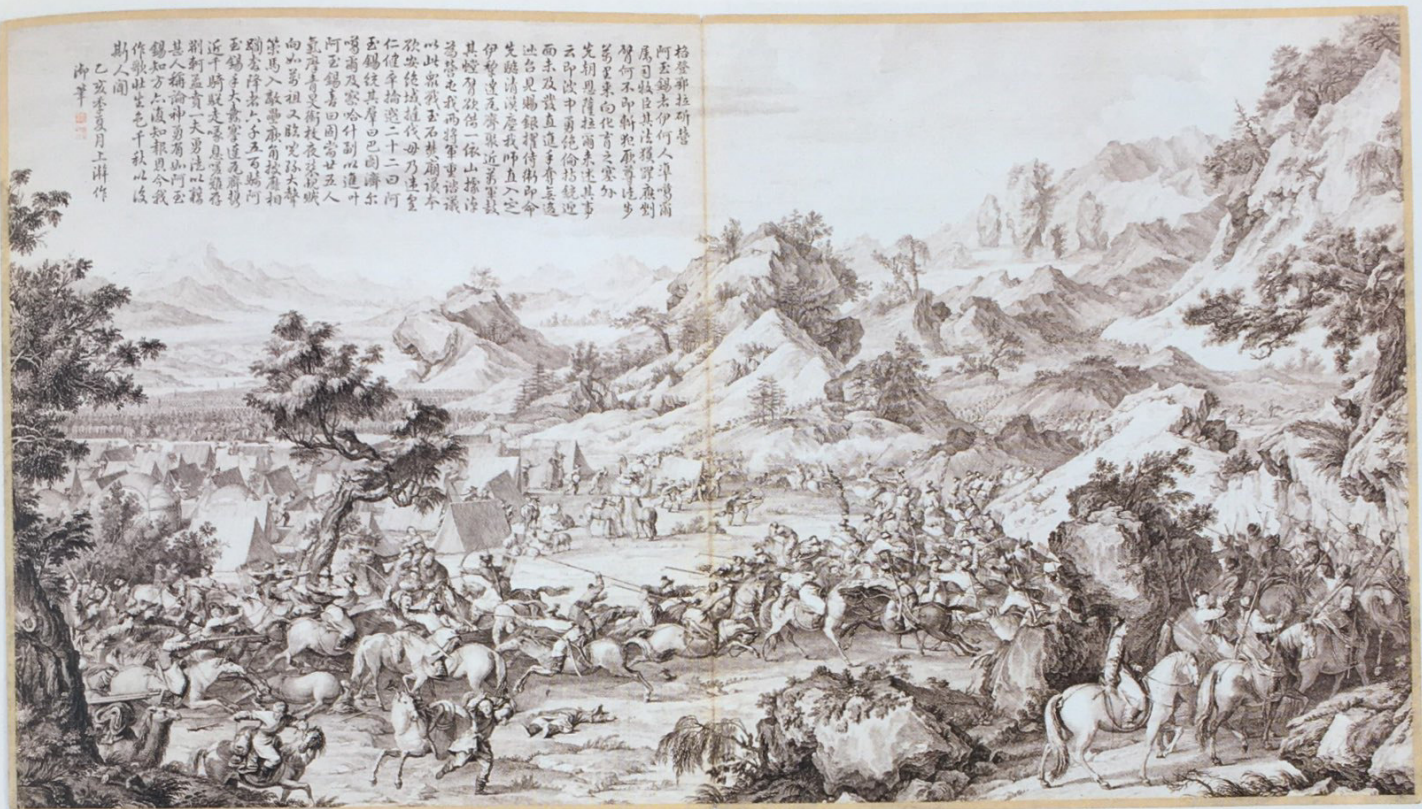 格登鄂拉斫營
阿玉錫者伊何人準噶爾
屬司牧臣其法獲罪應剉
臂何不即斬犯厥尊徒步
萬里來向化育之塞外
先朝恩薩拉爾來述其事
云即彼中勇絕倫持銃迎
面未及發直進手奪無逡
巡召見賜銀擢侍衛即命
先驅清漠塵我師直入定
伊犁達瓦齊聚近萬軍鼓
其螳臂欲借一依山據淖
為營屯我兩將軍重諮議
以此眾戰玉石焚廟謨本
欲安絕域挫伐毋乃違皇
仁健卒掄選二十二曰阿
玉錫統其羣曰巴圖濟爾
噶爾及察哈什副以進
阿玉錫喜曰固當廿五人
氣摩青旻銜枚夜襲覘賊
向如萬祖父臨兒孫大聲
策馬入敵壘厥角披靡相
躪奔降者六千五百騎阿
玉錫手大纛搴達瓦齊攜
近千騎駾走喙息嗟難存
荊軻孟賁一夫勇徒以藉
甚人稱論神勇有如阿玉
錫知方亦復知報恩今我
作歌壯生色千秋以後
斯人聞
乙亥季夏月上澣作
御筆